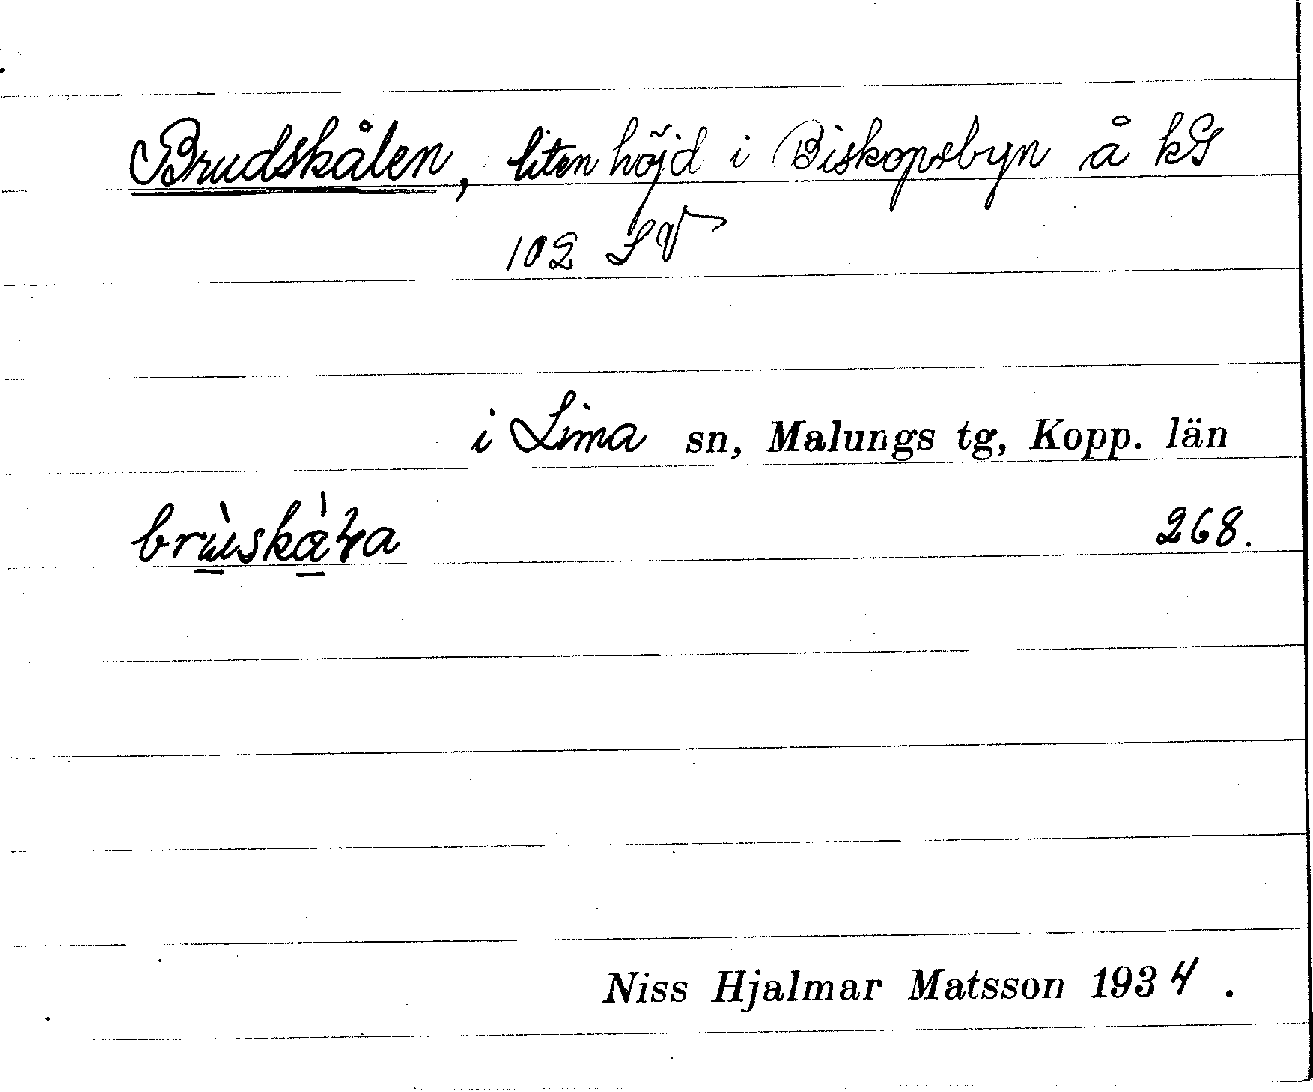 Brudskålen, liten höjd i Biskopsbyn å kS
102 SV
i Lima sn, Malungs tg, Kopp. län
268.
Niss Hjalmar Matsson 1934.